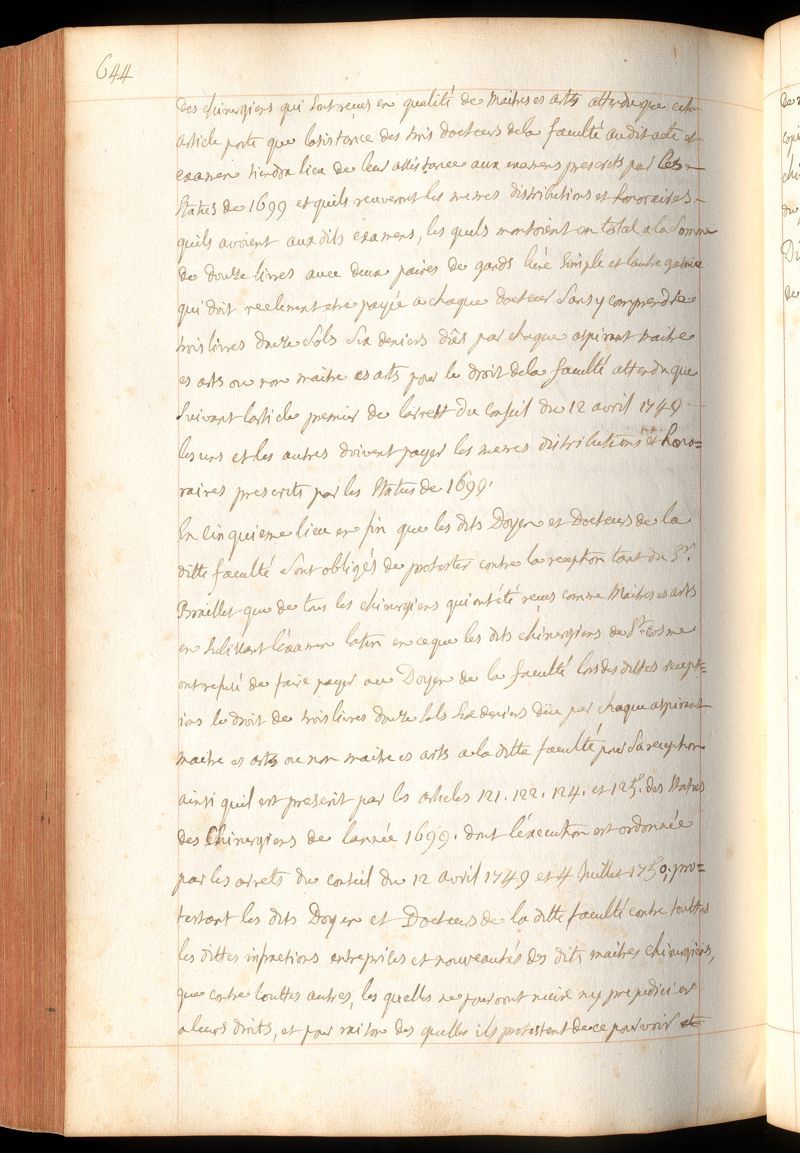 644
des chirurgiens qui sont reçus en qualité de Maitres es arts attendu que cet
article porte que lasistance des trois docteurs de la faculté audit acte et
examen tiendra lieu de leur assistance aux examens prescrits par les
Statuts de 1699 et quils recevront les memes distributions et honoraires
quils avoient auxdits examens, les quels montoient en total a la Somme
de douze livres avec deux paires de gands lune Simple et lautre garnie
qui doit reelement etre payée a chaque docteur Sans y comprendre
trois livres douze Sols Six deniers dûs par chaque aspirant maitre
es arts ou non maitre es arts pour le droit de la faculté attendu que
Suivant larticle premier de larrest du conseil du 12 avril 1749
les uns et les autres doivent payer les memes distributions et hono=
raires prescrits par les Statuts de 1699.
En cinquieme lieu en fin que les dits Doyen et Docteurs de la
ditte faculté Sont obligés de protester contre la reception tant du Sr.
Braillet que de tous les chirurgiens qui ont été reçus comme Maitres es arts
en Subissant l'examen latin en ce que les dits chirurgiens de St. Cosme
ont refusé de faire payer au Doyen de la faculté lors des dittes recept=
ions le droit de trois livres douze Sols Six deniers dûe par chaque aspirant
maitre es arts ou non maitre es arts a la ditte faculté pour Sa reception
ainsi quil est prescrit par les articles 121. 122. 124. et 125e. des Statuts
des Chirurgiens de lannée 1699. dont l'execution est ordonnée
par les arrets du conseil du 12 avril 1749 et 4 Juillet 1750; pro=
testant les dits Doyen et Docteurs de la ditte faculté contre touttes
les dittes infractions entreprises et nouveautés des dits maitres chirurgiens,
que contre touttes autres, les quelles ne pourront nuire ny prejudicier
a leurs droits, et pour raison des quelles ils protestent de ce pourvoir et